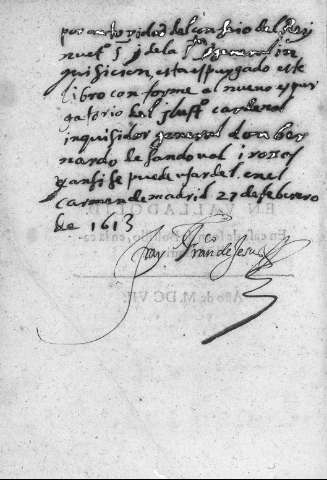 por autoridad del consejo del Rey
nuestro S. y de la S. general in
quisicion, esta espurgado este
libro conforme a nuevo espur
gatorio del Illust. cardenal
inquisidor general don ber
nardo de sandoval i roxas
y ansi se puede usar del. en el
carmen de madrid 27 de febrero
de 1613
fray Franco de Jesus
EN VALLADOLID
Año de M.DC VII.